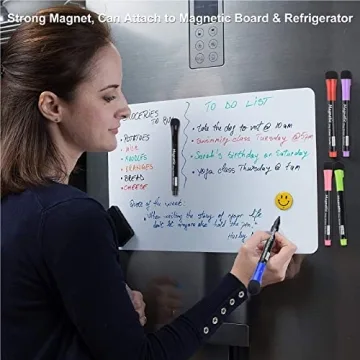 Strong Magnet, Can Attach to Magnetic Board & Refrigerator
GROCERIES
TO BUY
POTATOES
MILK
NOODLES
ORANGES
BREAD
CHEESE
TO DO LIST
• Take the dog to vet @ 10 am
• Swimming class Tuesday @ 5pm
• Sarah's birthday on Saturday
• Yoga class Thursday @ 7am
Quote of the week:
"When writing the story of your life
don't let anyone else hold the pen"